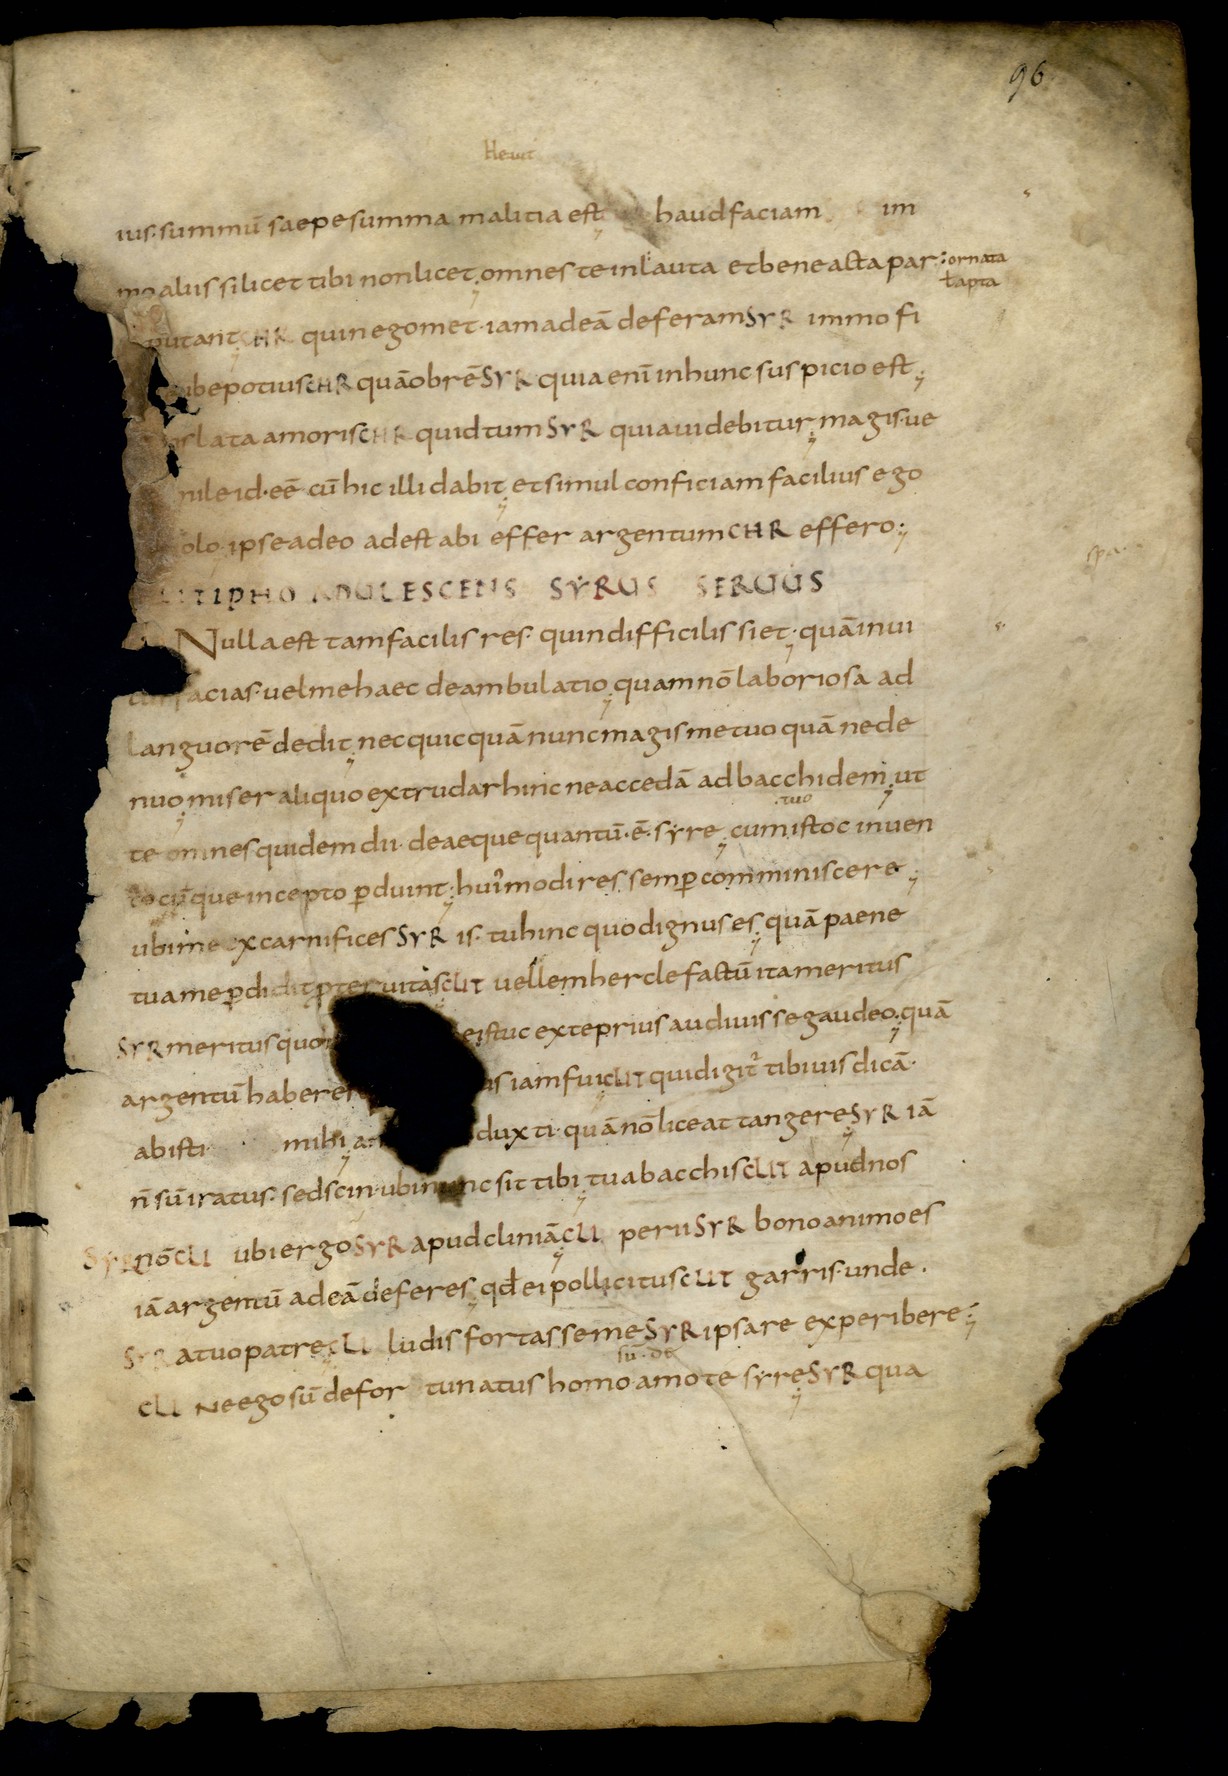 96
Heaut
ius· summū saepe summa malitia est haud faciam im
mo aliis si licet tibi non licet omnes te in lauta et bene acta par ornata
ł apta
putant CHR quin egomet· iam ad eā deferam SYR immo fi
be potius CHR quāobrē SYR quia enī in hunc suspicio est
lata amoris CHR quid tum SYR quia uidebitur magis ue
nile id· eē cū hic illi dabit et simul conficiam facilius ego
olo ipse adeo adest abi effer argentum CHR effero
CLITIPHO ADULESCENS SYRUS SERUUS
Nulla est tam facilis res· quin difficilis siet· quā inui
facias· uel me haec deambulatio quam nō laboriosa ad
languorē dedit nec quicquā nunc magis metuo quā ne de
nuo miser aliquo extrudar hinc ne accedā ad bacchidem ut
·tuo
te omnes quidem dii· deaeque quantū·ē· syre cum istoc inuen
to cūque incepto pduint hui'modi res semp comminiscere
ubi me excarnifices SYR is· tu hinc quo dignus es quā paene
tua me pdidit pteruitas CLIT uellem hercle factū ita meritus
SYR meritus quo e istuc ex te prius audiuisse gaudeo quā
argentū habere as iam fui CLIT quid igit' tibi uis dicā·
abisti· mihi a dux ti· quā nō liceat tangere SYR iā
n̄ sū iratus· sed scin· ubi nunc sit tibi tua bacchis CLIT apud nos
SYR nō CLI ubi ergo SYR apud cliniā CLI perii SYR bono animo es
iā argentū ad eā deferes qd ei pollicitus CLIT garris· unde·
SYR a tuo patre CLI ludis fortasse me SYR ipsa re experibere
sū· de
CLI Ne ego sū defor tunatus homo amo te syre SYR qua